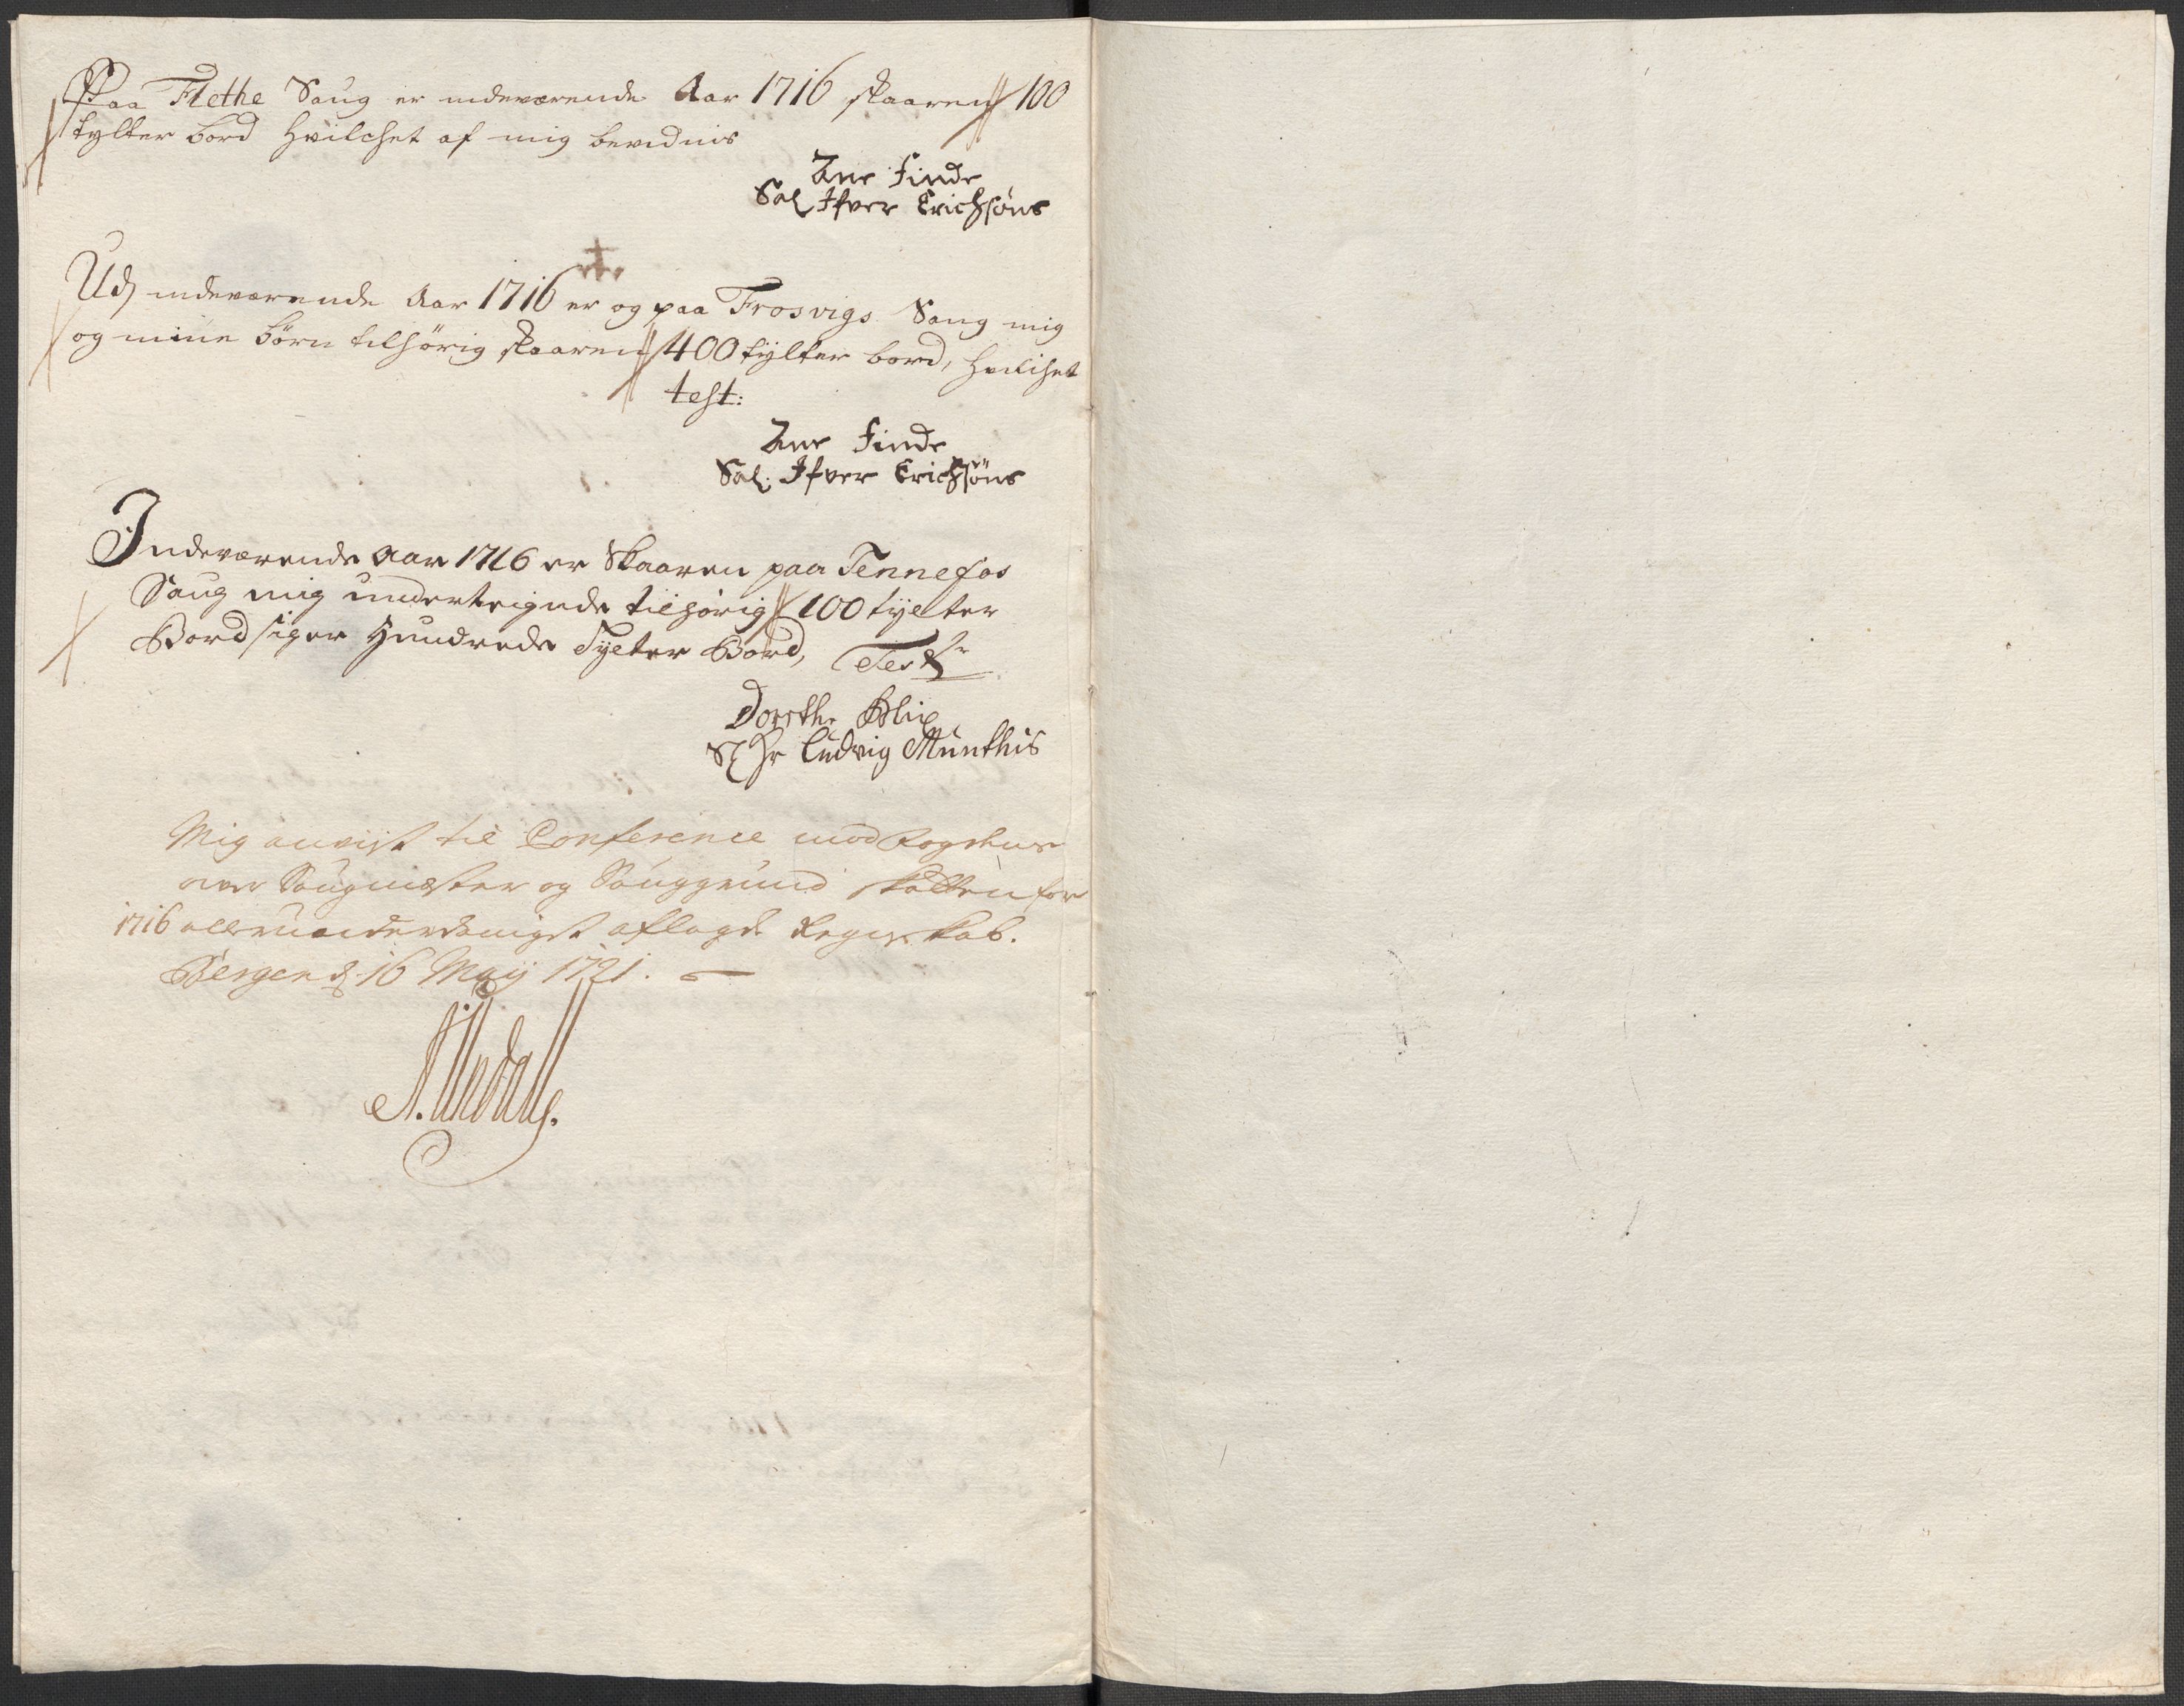 Paa Flethe Saug er indeværende Aar 1716 skaaren 100
tylter bord hvilchet af mig bevidnis
Ane Finde
Sal Ifver Erichsøns
Udj indeværende Aar 1716 er og paa Frosvigs Saug mig
og mine børn tilhørig skaaren 400 tylter bord, hvilchet
test:
Ane Finde
Sal. Ifver Erichsöns
Indeværende Aar 1716 er Skaaren paa Tennefos
Saug mig underteignede tilhørig 100 tylter
Bord siger Hundrede Tylter Bord,
Dorethe Blix
Sl Hr Ludvig Munthis
Mig anvist til Conference mod Fogdens
over Saugmester og Sauggrund skatten for
1716 allerunderdanigst aflagde Regnskab.
Bergen d 16 Maij 1721.